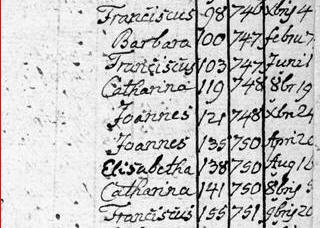 Franciscus 98 746 Xbrij 4
Barbara 100 747 febru 7
Franciscus 103 747 Junij 1
Catharina 119 748 8br 19
Joannes 121 748 Xbri 24
Joannes 135 750 Apri 20
Elisabetha 138 750 Aug 12
Catharina 141 750 8brij 5
Franciscus 155 751 9brij 20